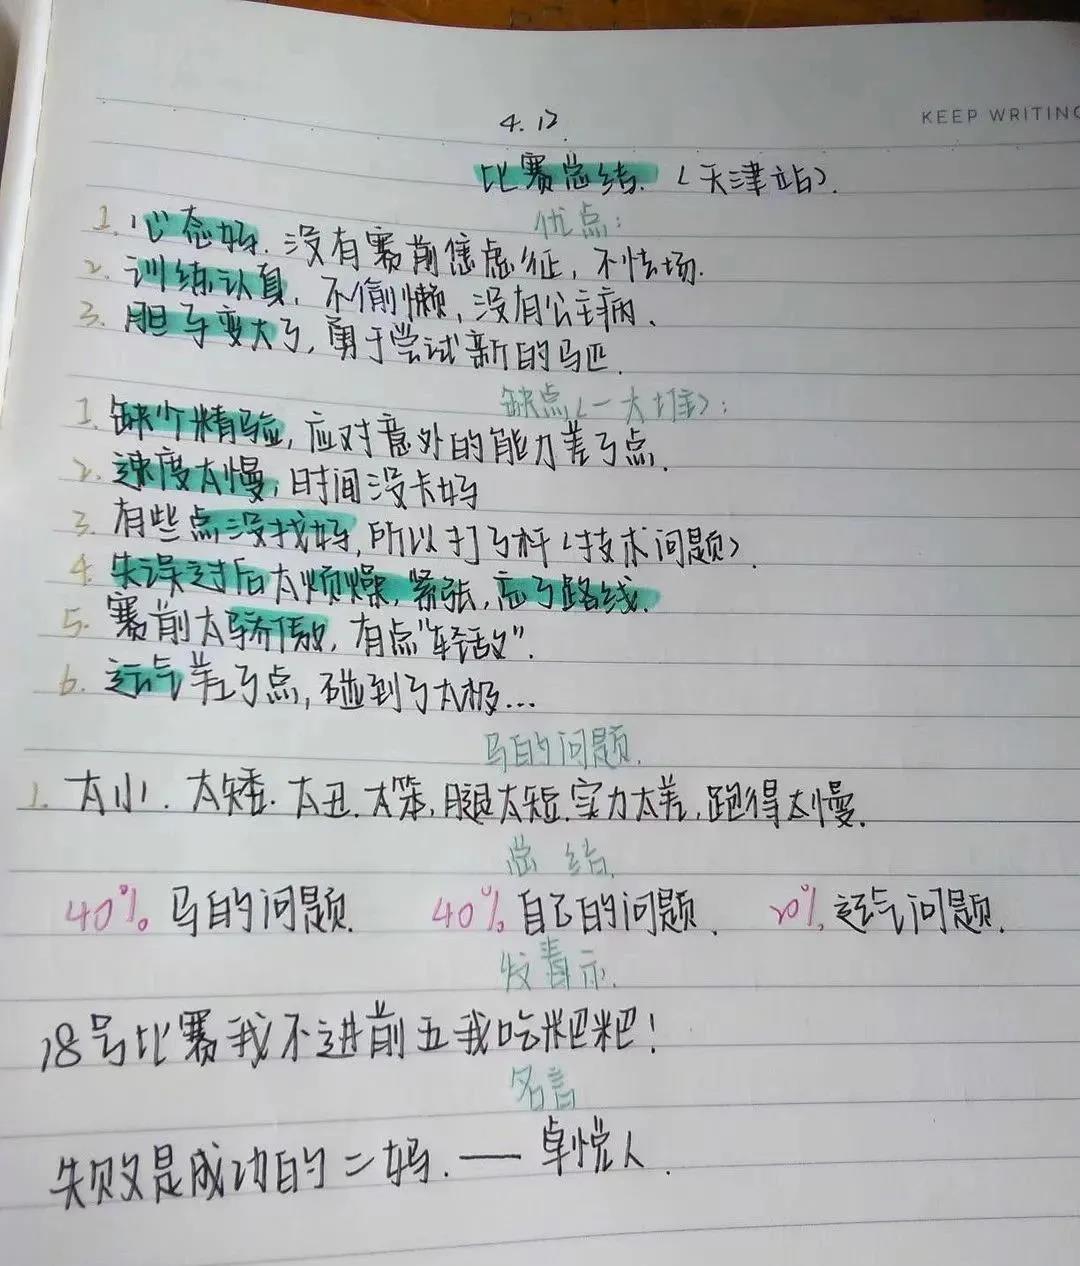 KEEP WRITING
4.12
比赛总结.(天津站).
优点:
1.心态好.没有赛前焦虑征,不怯场.
2.训练认真,不偷懒,没有公主病.
3.胆子变大了,勇于尝试新的马匹.
缺点(一大堆):
1.缺少精验,应对意外的能力差了点.
2.速度太慢,时间没卡好
3.有些点没找好,所以打了杆(技术问题).
4.失误过后太烦燥,紧张,忘了路线.
5.赛前太骄傲,有点"轻敌".
6.运气差了点,碰到了太极...
马的问题.
1.太小.太矮.太丑.太笨,腿太短.实力太差,跑得太慢.
总结.
40%马的问题. 40%自己的问题. 20%运气问题.
发毒示.
18号比赛我不进前五我吃粑粑!
名言
失败是成功的二妈.——卓悦人.